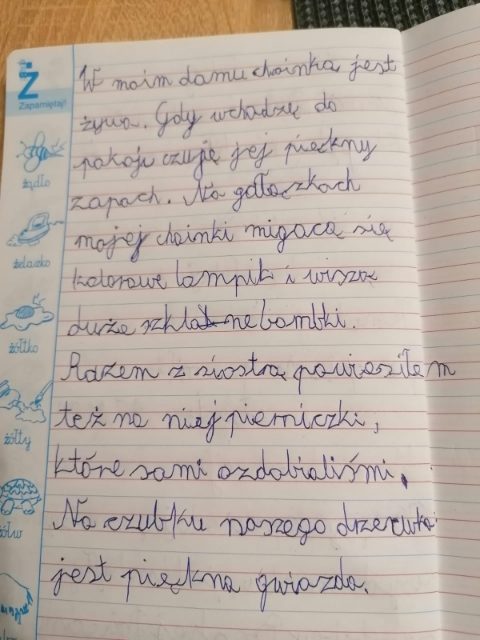 Ż
Zapamiętaj!
żądło
żelazko
żółtko
żółty
żółw
W moim domu choinka jest
żywa. Gdy wchodzę do
pokoju czuję jej piękny
zapach. Na gałązkach
mojej choinki migacą się
kolorowe lampik i wiszą
duże szklane bombki.
Razem z siostrą powiesiłem
też na niej pierniczki,
które sami ozdobialiśmi.
Na czubku naszego drzewka
jest piękna gwiazda.